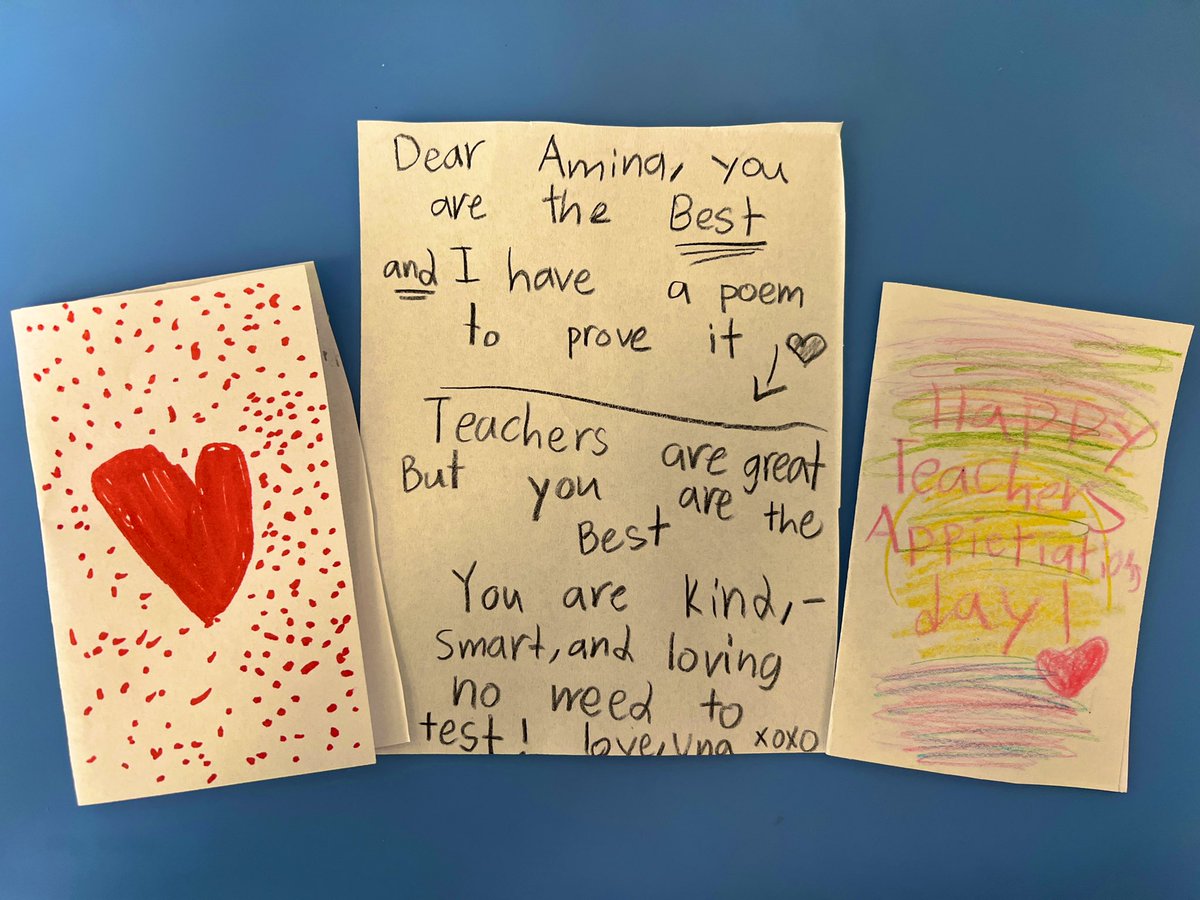 Dear Amina, you
are the Best
and I have a poem
to prove it
Teachers are great
But you are the
Best
You are kind,-
smart, and loving
no need to
test! love, Una xoxo
Happy
Teachers
Appietiation
day!